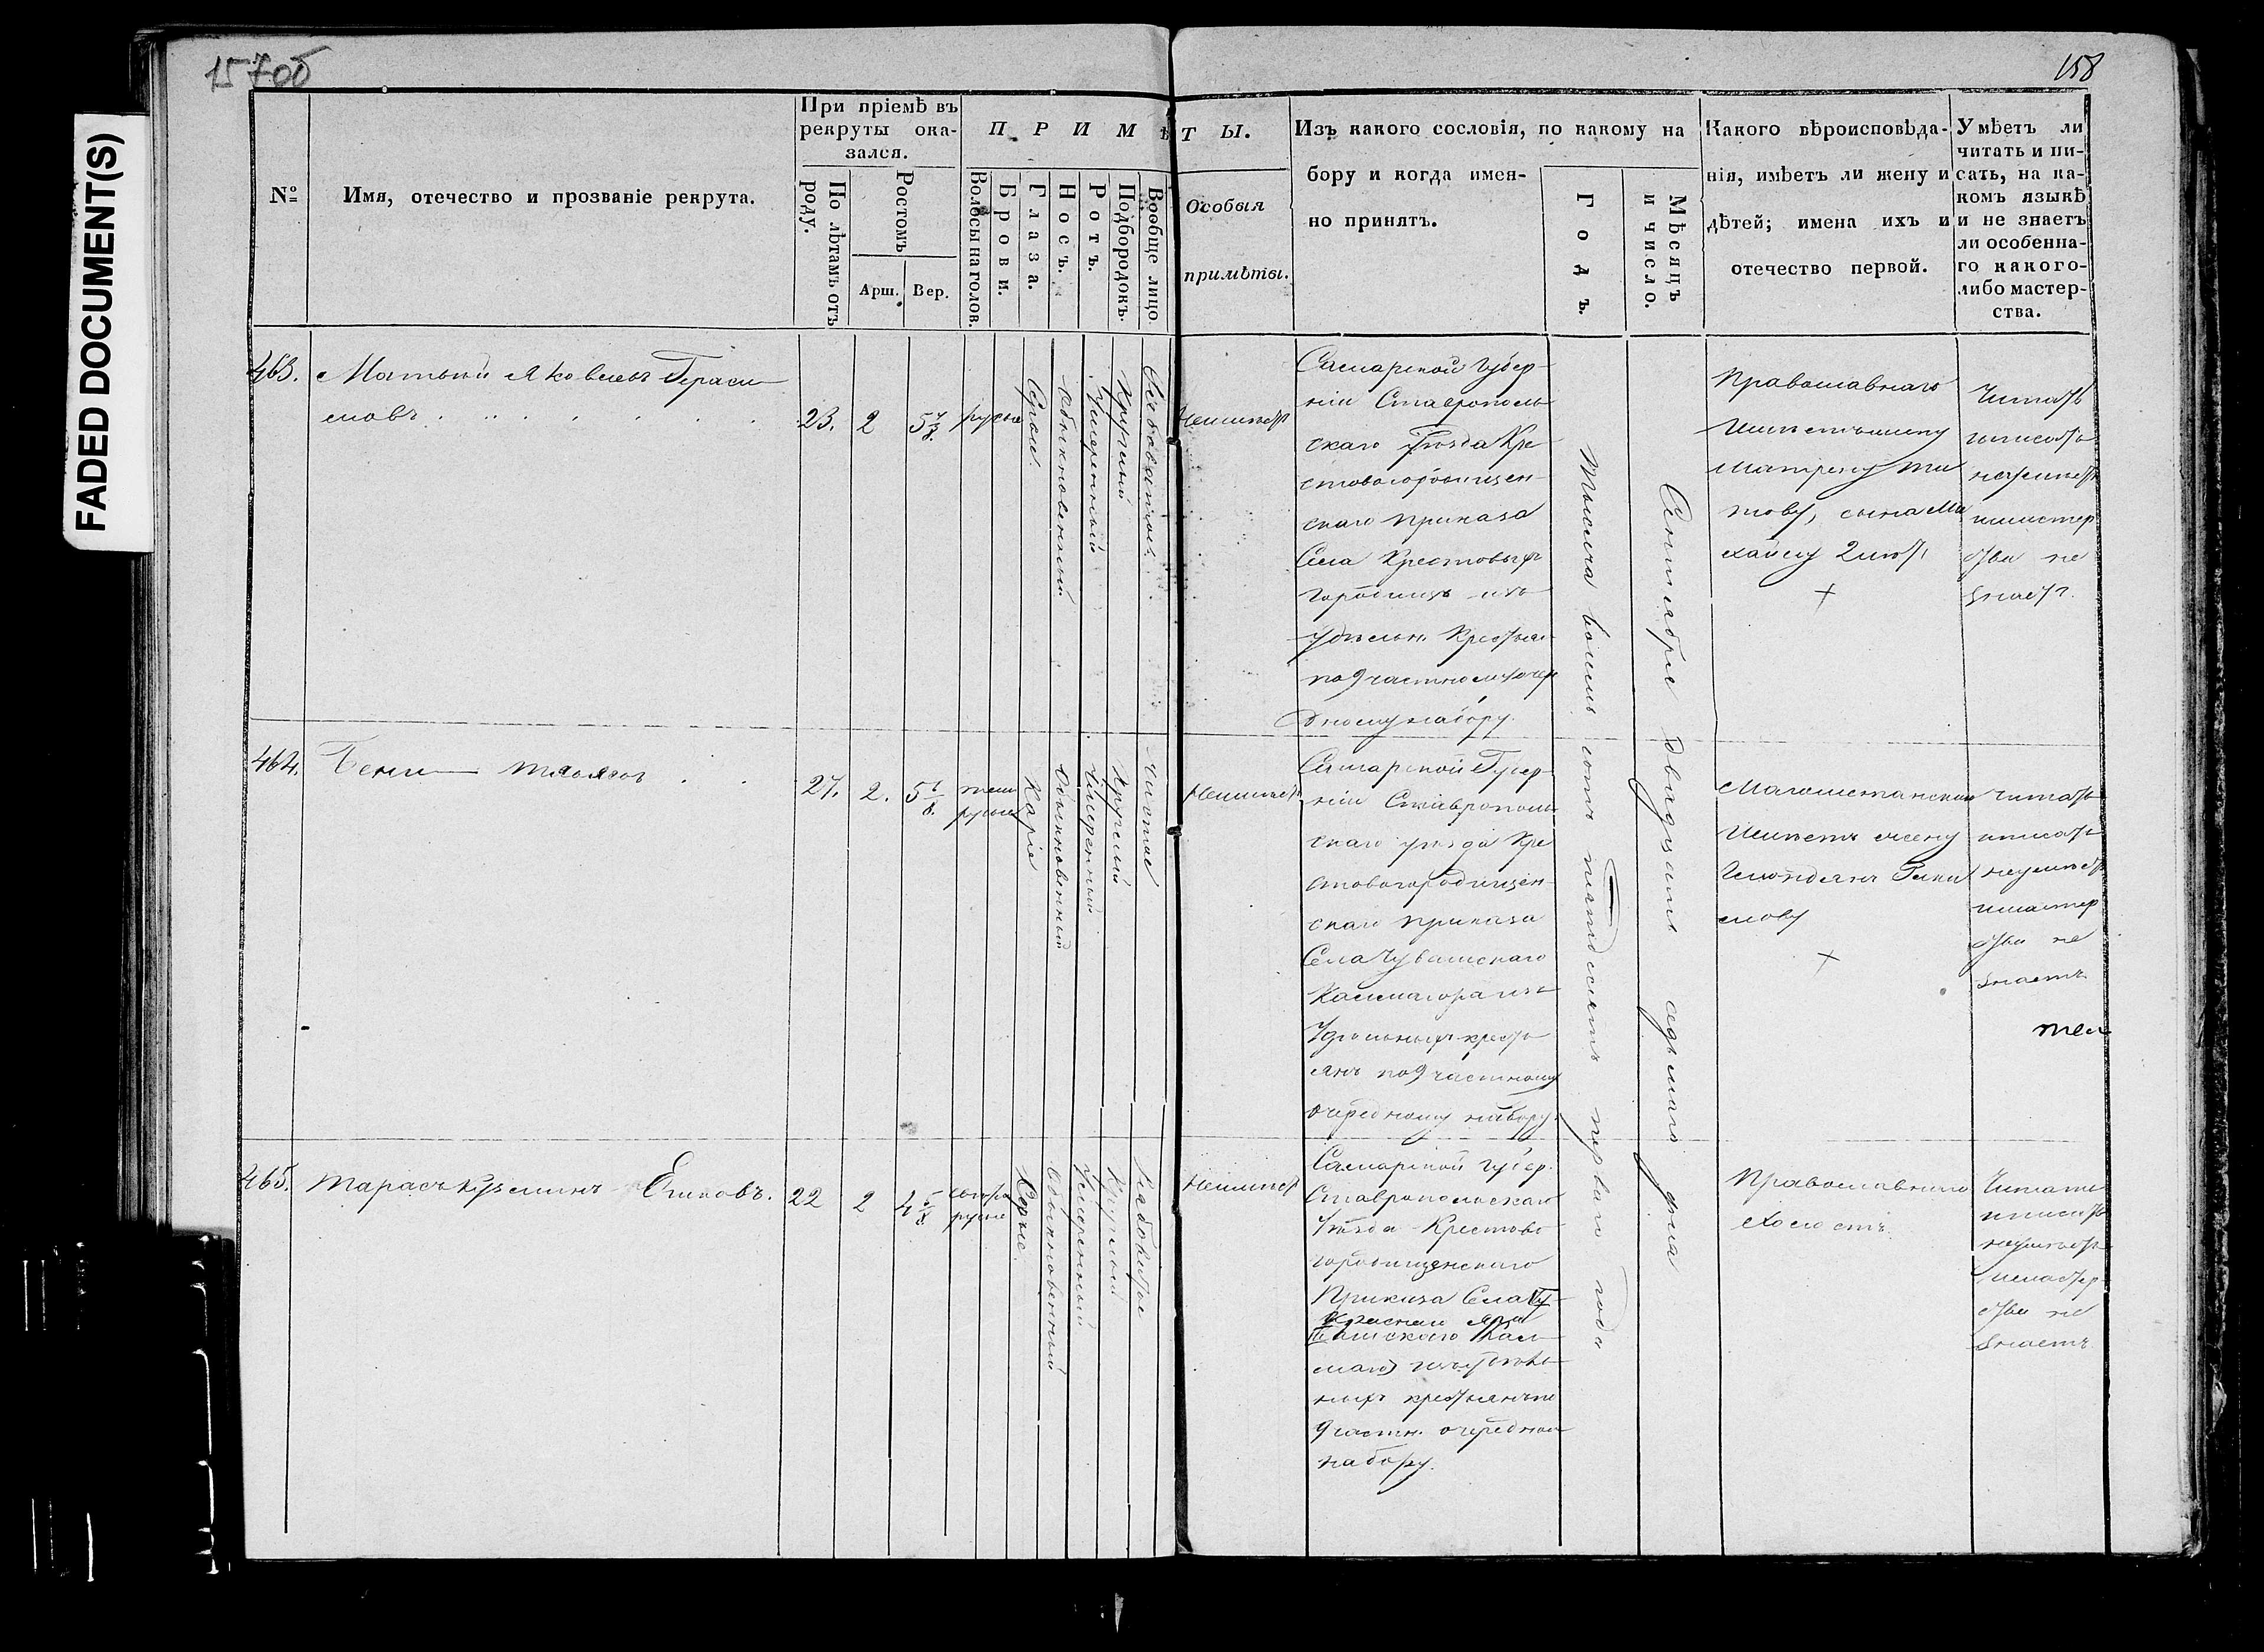 FADED DOCUMENT(S)
157об
158
№
Имя, отечество и прозваніе рекрута.
При пріемѣ въ
рекруты ока-
зался.
По лѣтамъ отъ
роду.
Ростомъ
Арш.
Вер.
ПРИМѢТЫ.
Волосы на голов.
Брови.
Глаза.
Носъ.
Ротъ.
Подбородокъ.
Вообще лицо.
Особыя
примѣты.
Изъ какого сословія, по какому на
бору и когда имен-
но принятъ.
Годъ.
Мѣсяцъ
и число.
Какого вѣроисповѣда-
нія, имѣетъ ли жену и
дѣтей; имена ихъ и
отечество первой.
Умѣетъ ли
читать и пи-
сать, на ка-
комъ языкѣ
и не знаетъ
ли особенна-
го какого-
либо мастер-
ства.
463.
Матвей Яковлевъ Гераси
мовъ
23.
2
5 7/8.
русые
Серые.
Обыкновенный
Умеренный
Круглый
Рябоватое.
Неимѣет
Самарской Губер-
ніи Ставрополь
скаго Уезда Кре
стовогородищен-
скаго приказа
Села Крестовыхъ
городищъ изъ
Удѣльн. Крестьян
по 9 частному очер
едному набору.
Тысяча восемь сотъ пятьдесятъ перваго года
Сентября двадцать седьмаго дня
Православнаго
Имѣетъ жену
Матрену Ти
тову, сына Ми
хайлу 2 лет,
+
Читать
иписать
неумеетъ
имастер
ства не
знает.
464.
27.
2.
5 1/8.
тем
русые
Каріе
Обыкновенный
Умеренный
Круглый
Чистое
Неимѣет
Самарской Губер-
ніи Ставрополь
скаго уѣзда Кре
стовогородищен-
скаго приказа
Села Чувашскаго
Калмаюра изъ
Удѣльныхъ кресть
янъ по 9 частному
очередному набору.
Магометанскаго
Имѣетъ жену
+
Читать
иписать
неумѣетъ
имастер
ства не
знаетъ
465.
Тарасъ Кузминъ Епиковъ.
22
2
4 5/8
светло
русые
Серые.
Обыкновенный
Умеренный
Круглый
Рябоватое
Неимѣет
Самарской губер.
Ставропольскаго
Уѣзда Крестово
городищенскаго
Приказа Села Чу
Красный Яръ
вашскаго Кал
маюр изъ удѣль
ныхъ крестьянъ по
9 частн. очередном
набору.
Православнаго
Холостъ
Читать
иписать
неумѣетъ
имастер
ства не
знаетъ